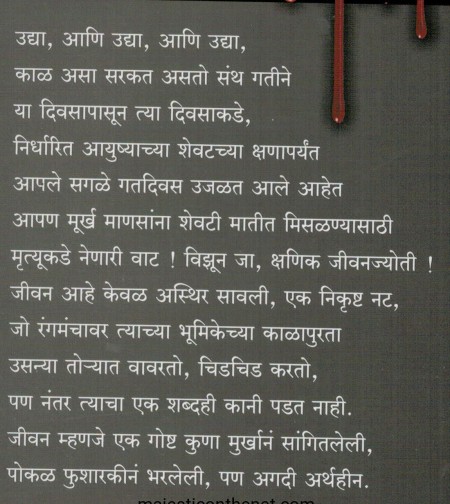 उद्या, आणि उद्या, आणि उद्या,
काळ असा सरकत असतो संथ गतीने
या दिवसापासून त्या दिवसाकडे,
निर्धारित आयुष्याच्या शेवटच्या क्षणापर्यंत
आपले सगळे गतदिवस उजळत आले आहेत
आपण मूर्ख माणसांना शेवटी मातीत मिसळण्यासाठी
मृत्यूकडे नेणारी वाट ! विझून जा, क्षणिक जीवनज्योती !
जीवन आहे केवळ अस्थिर सावली, एक निकृष्ट नट,
जो रंगमंचावर त्याच्या भूमिकेच्या काळापुरता
उसन्या तोऱ्यात वावरतो, चिडचिड करतो,
पण नंतर त्याचा एक शब्दही कानी पडत नाही.
जीवन म्हणजे एक गोष्ट कुणा मुर्खानं सांगितलेली,
पोकळ फुशारकीनं भरलेली, पण अगदी अर्थहीन.